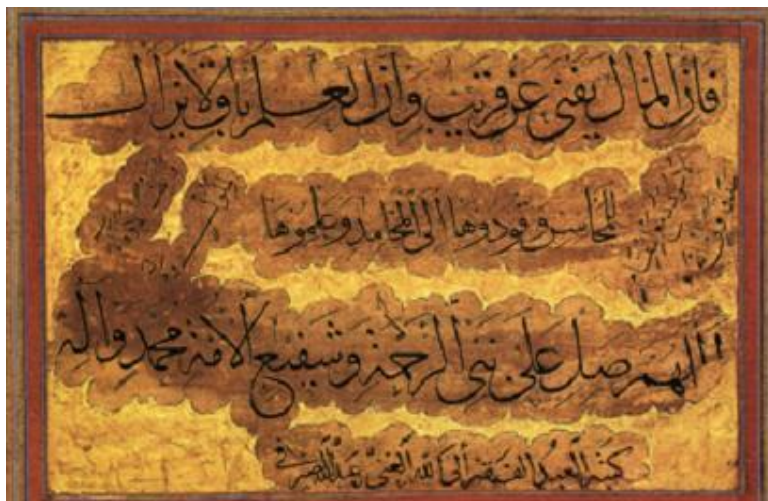 فان المال يفنى عن قريب وان العلم باق لا يزال
للمحاسن وقودوها الى المحامد وعلموها
اللهم صل على نبي الرحمة وشفيع الامة محمد وآله
كتبه العبد الفقير الى الله الغني عبد الله